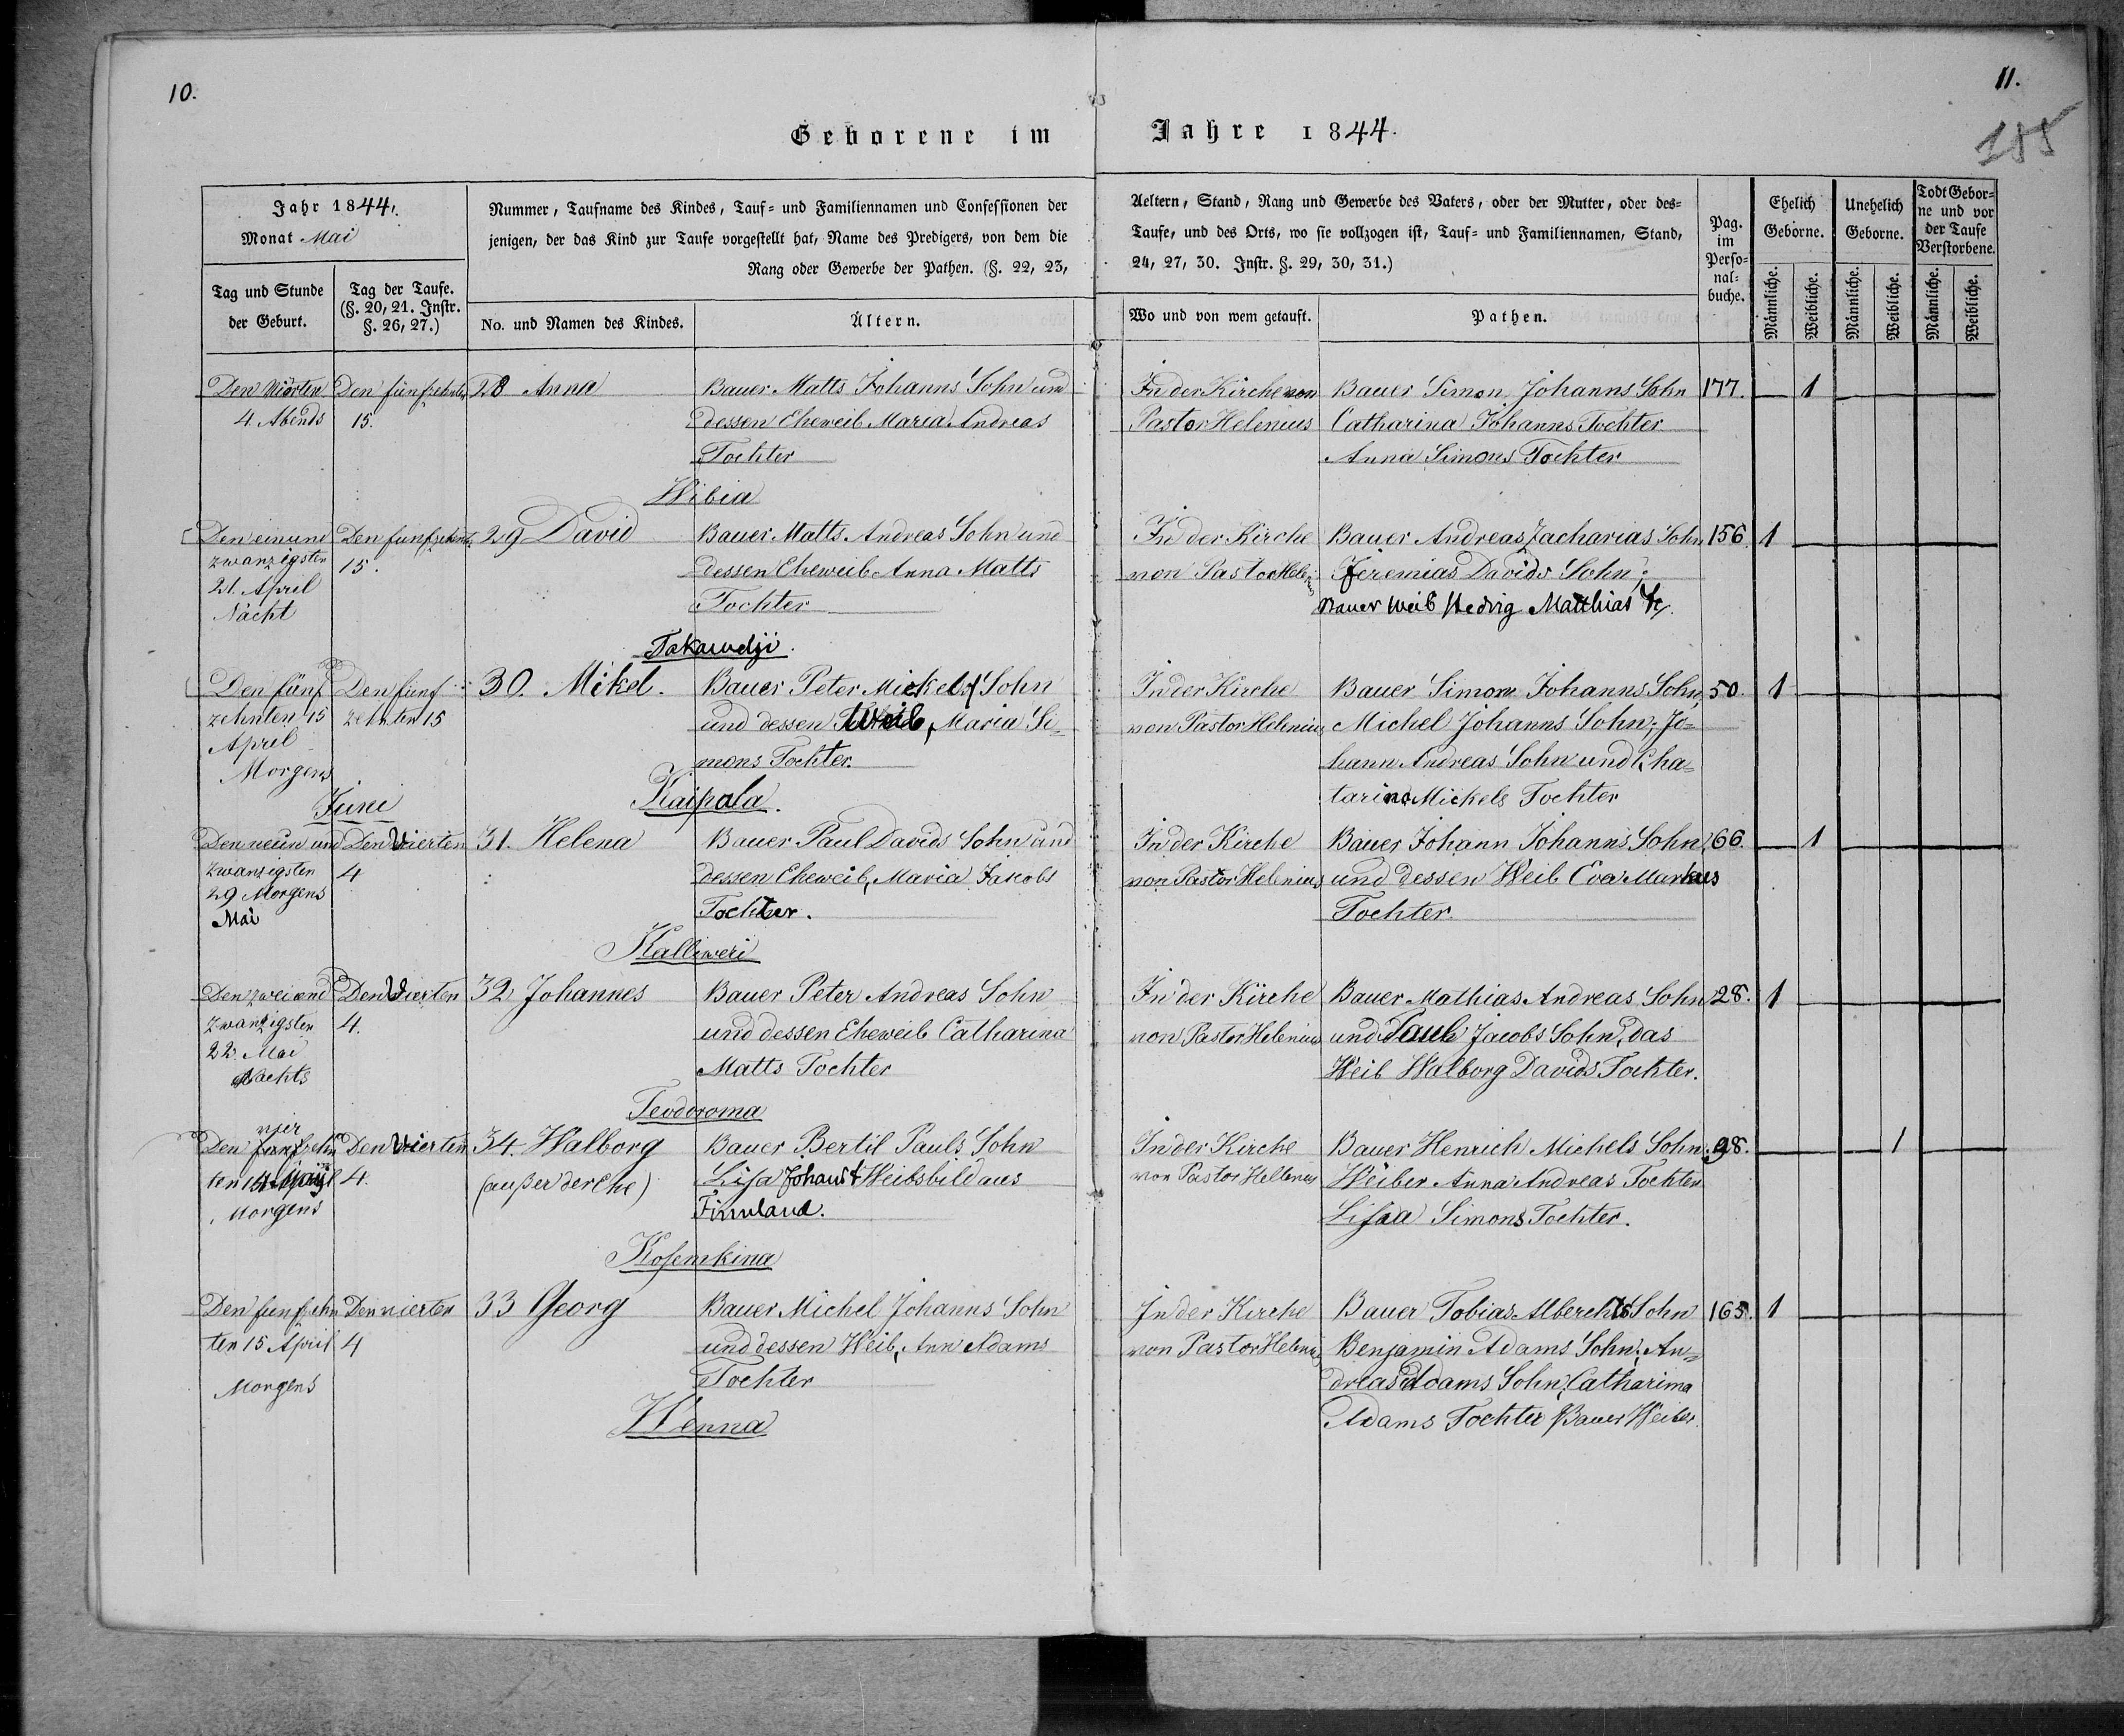 10.
11.
185
Geborene im Jahre 1844.
Jahr 1844.
Monat Mai
Tag und Stunde
der Geburt.
Tag der Taufe.
(§. 20, 21. Instr.
§. 26, 27.)
Nummer, Taufname des Kindes, Tauf- und Familiennamen und Confessionen der
jenigen, der das Kind zur Taufe vorgestellt hat, Name des Predigers, von dem die
Rang oder Gewerbe der Pathen. (§. 22, 23,
No. und Namen des Kindes.
Ältern.
Aeltern, Stand, Rang und Gewerbe des Vaters, oder der Mutter, oder des-
Taufe, und des Orts, wo sie vollzogen ist, Tauf- und Familiennamen, Stand,
24, 27, 30. Instr. §. 29, 30, 31.)
Wo und von wem getauft.
Pathen.
Pag.
im
Perso-
nal-
buche.
Ehelich
Geborne.
Unehelich
Geborne.
Todt Gebor-
ne und vor
der Taufe
Verstorbene.
Männliche.
Weibliche.
Männliche.
Weibliche.
Männliche.
Weibliche.
Den vierten
4. Abends
Den funfzehnten
15.
28 Anna
Bauer Matts Johanns Sohn und
dessen Eheweib Maria Andreas
Tochter
Wibia
In der Kirche von
Pastor Helenius
Bauer Simon Johanns Sohn
Catharina Johanns Tochter
Anna Simons Tochter
177.
1
Den ein und
zwanzigsten
21. April
Nacht
Den funfzehnt.
15.
29 David
Bauer Matts Andreas Sohn und
dessen Eheweib Anna Matts
Tochter
Takawelji.
In der Kirche
von Pastor Helenius
Bauer Andreas Zacharias Sohn
Jeremias Davids Sohn;
Bauer Weib Hedvig Matthias
156.
1
Den fünf
zehnten 15
April
Morgens
Den funf
zehnten 15
30. Mikel.
Bauer Peter Mickels Sohn
und dessen Weib, Maria Si-
mons Tochter.
Kaipala.
In der Kirche
von Pastor Helenius
Bauer Simon Johanns Sohn,
Michel Johanns Sohn; Jo-
hann Andreas Sohn und Cha-
tarina Mickels Tochter
50.
1
Juni
Den neun und
zwanzigsten
29 Morgens
Mai
Den Vierten
4
31. Helena
Bauer Paul Davids Sohn und
dessen Eheweib, Maria Jakobs
Tochter.
Kalliweri
In der Kirche
von Pastor Helenius
Bauer Johann Johanns Sohn
und dessen Weib Eva Markus
Tochter.
66.
1
Den zwei und
zwanzigsten
22. Mai
Nachts
Den Vierten
4.
32 Johannes
Bauer Peter Andreas Sohn
und dessen Eheweib Catharina
Matts Tochter
Teodoroma
In der Kirche
von Pastor Helenius
Bauer Mathias Andreas Sohn
und Paul Jacobs Sohn, das
Weib Walborg Davids Tochter.
28.
1
vier
Den funfzehn
ten 14
Morgens
Den Vierten
4.
34. Walborg
(außer der Ehe)
Bauer Bertil Pauls Sohn
Lisa Weibsbild aus
Finnland.
Kosemkina
In der Kirche
von Pastor Hellenius
Bauer Henrich Michels Sohn
Weiber Anna Andreas Tochter
Lisa Simons Tochter.
98.
1
Den funfzehn
ten 15 April
Morgens
Den vierten
4
33 Georg
Bauer Michel Johanns Sohn
und dessen Weib, Ann Adams
Tochter
Wenna
In der Kirche
von Pastor Helenius
Bauer Tobias Alberchts Sohn
Benjamin Adams Sohn; An-
dreas Adams Sohn, Catharina
Adams Tochter Bauer Weiber.
165.
1